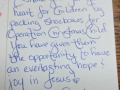 heart for children by
packing shoeboxes for
Operation Christmas Child
you have given them
the opportunity to have
an everlasting hope &
joy in Jesus